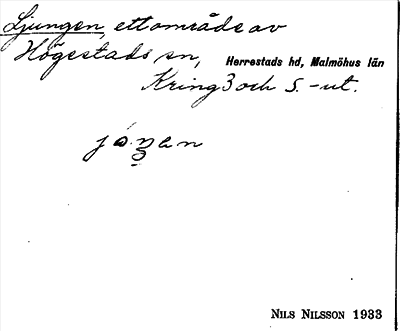 Ljungen, ett område av
Högestads sn, Herrestads hd, Malmöhus län
Kring 3 och s. -ut.
NILS NILSSON 1933